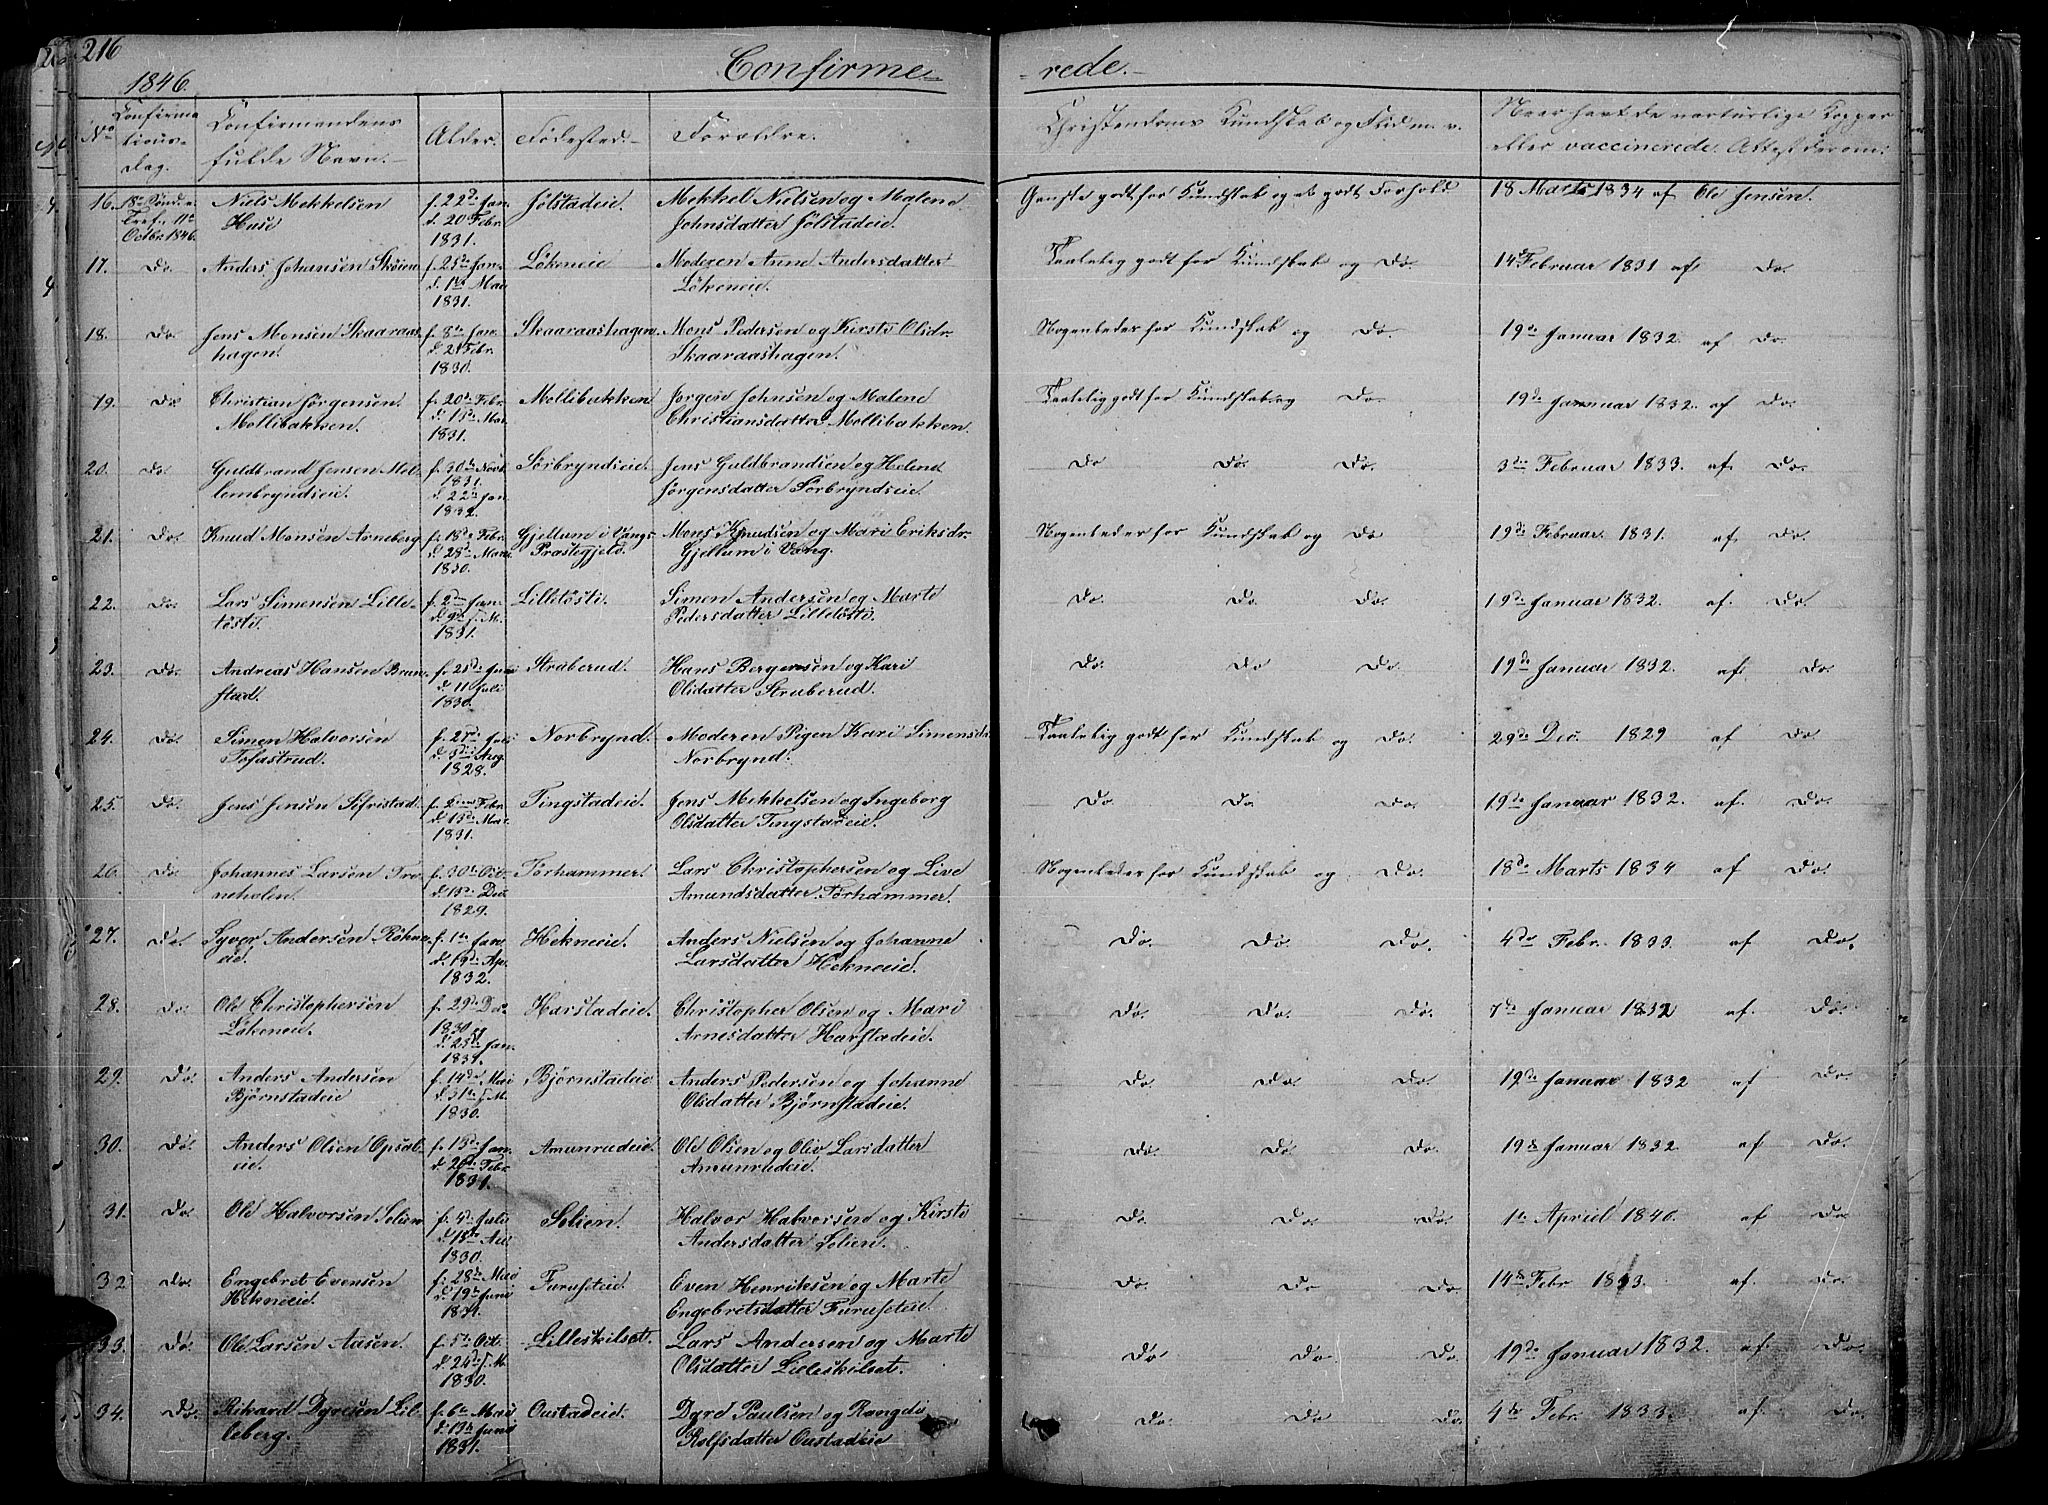 216
1846.
Confirme-
-rede.-
No
Confirma-
tions-
dag.
Confirmandens
fulde Navn.-
Alder.
Fødested.-
Forældre.
Christendoms Kundskab og Flid m. v.
Neer havt de naturlige Kopper
eller vaccinerede. Attest derom.
16. 18de Sønd. e. Niels Mekkelsen f. 22de Jan. Jølstadeie. Mekkel Nielsen og Malene Ganske godt for Kundskab og et godt Forhold 18 Marts 1834 af Ole Jensen.
Tref. 11te Huse d. 20 Febr. Johnsdatter Jølstadeie.
Octbr. 1846. 1831.
17. Do. Anders Johansen Skøien f. 25de Jan. Løkeneie Moderen Anne Andersdatter Taalelig godt for Kundskab og Do. 14de Februar 1831 af Do.
d. 1ste Mai Løkeneie.
1831.
18. Do. Jens Monsen Skaaraas- f. 8de Jan. Skaaraashagen. Mons Pedersen og Kirsti Olsdr. Nogenleder for Kundskab og Do. 19de Januar 1832. af Do.
hagen. d. 24 Febr. Skaaraashagen.
1830.
19. Do. Christian Jørgensen f. 20de Febr. Mollibakken Jørgen Johnsen og Malene Taalelig godt for Kundskab og Do. 19de Januar 1832. af Do.
Mollibakken. d. 15de Mai Christiansdatter Mollibakken.
1831.
20. Do. Guldbrand Jensen Mel- f. 30de Novb. Sørbryndseie. Jens Guldbrandsen og Helene Do Do. Do. 3die Februar 1833. af Do.
lembryndseie. 1831. Jørgensdatter Sørbryndseie
d. 22de Jan.
1832.
21. Do. Knud Monsen Arneberg f. 18de Febr. Gjellum i Vangs Mons Knudsen og Mari Eriksdr. Nogenleder for Kundskab og Do 19de Februar. 1831. af Do.
d. 28de Mars Præstegjeld. Gjellum i Vang.
1830.
22. Do. Lars Simensen Lille- f. 2den Jan. Lilletøsti. Simen Andersen og Marte Do. Do. Do. 19de Januar 1832. af. Do.
tøsti. d. 9de s. M. Pedersdatter Lilletøsti.
1831.
23. Do. Andreas Hansen Brun- f. 25de Juni Struberud. Hans Bergersen og Kari Do. Do Do. 19de Januar 1832. af. Do.
stad. d. 11 Juli Olsdatter Struberud.
1830.
24. Do. Simen Halvorsen f. 27de Juli Norbrynd. Moderen Pigen Kari Simensd. Taalelig godt for Kundskab og Do. 29de Dec. 1829 af Do
Tofastrud. d. 3die Aug. Norbrynd.
1828.
25. Do. Jens Jensen Sifristad. f. 2den Febr. Tingstadeie. Jens Mekkelsen og Ingeborg Do. Do. Do. 19de Januar 1832. af. Do.
d. 15de Mai Olsdatter Tingstadeie.
1831.
26. Do. Johannes Larsen Tro- f. 30te Oct. Tørhammer. Lars Christophersen og Live Nogenleder for Kundskab og Do. 18de Marts 1834 af Do.
neholen. d. 18de Dec. Amundsdatter Tørhammer.
1829.
27. Do. Syver Andersen Røhne- f. 1te Jan. Hekneeie. Anders Nielsen og Johanne Do. Do. Do. 4de Febr. 1833. af Do.
eie. d. 19de Apr. Larsdatter Hekneeie.
1832.
28. Do. Ole Christophersen f. 29de Dec. Harstadeie. Christopher Olsen og Mari Do. Do. Do. 7de Januar 1832 af. Do.
Løkeneie. 1830 Arnesdatter Harstadeie.
d. 25de Jan.
1831.
29. Do. Anders Andersen f. 14de Mai Bjørnstadeie Anders Pedersen og Johanne Do. Do. Do. 19de Januar 1832 af Do.
Bjørnstadeie d. 31te s. M. Olsdatter Bjørnstadeie.
1830.
30. Do. Anders Olsen Opsal- f. 13de Jan. Amunrudeie. Ole Olsen og Oliv Larsdatter Do. Do. Do. 19de Januar 1832. af Do.
eie. d. 20de Febr. Amunrudeie.
1831.
31. Do. Ole Halvorsen Solien f. 4de Julii Solien. Halvor Halvorsen og Kirsti Do. Do. Do. 1te Apriel 1840. af Do.
d. 18de Jul. Andersdatter Solien.
1830.
32. Do. Engebret Evensen f. 28de Mai Furuseteie. Even Henriksen og Marte Do. Do Do. 14de Febr. 1833. af. Do.
Hekneeie. d. 19de Juni Engebretsdatter Furuseteie
1831.
33. Do. Ole Larsen Aasen. f. 5te Oct. Lilleskilset. Lars Andersen og Marte Do Do. Do. 19de Januar 1832. af. Do.
d. 24de s. M. Olsdatter Lilleskilset.
1830.
34. Do. Rikard Dyresen Lil- f. 6te Mai Oustadeie. Dyre Paulsen og Rangdi Do. Do. Do. 4de Febr. 1833. af. Do.
leberg. d. 19de Juni Rolfsdatter Oustadeie
1831.